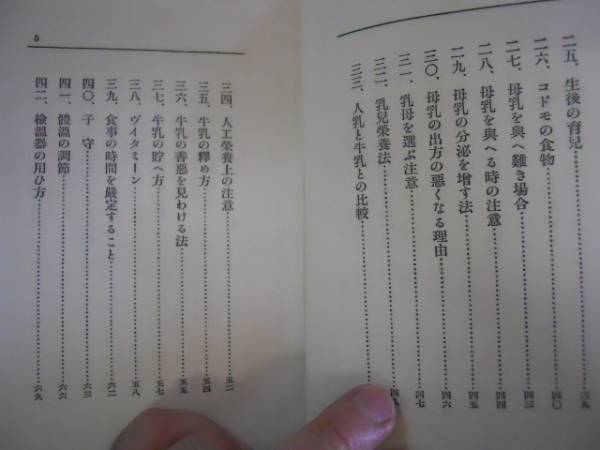 二五、生後の育兒……………三九
二六、コドモの食物……………四〇
二七、母乳を與へ難き場合……………四三
二八、母乳を與へる時の注意……………四四
二九、母乳の分泌を増す法……………四五
三〇、母乳の出方の悪くなる理由……………四六
三一、乳母を選ぶ注意……………四七
三二、乳兒榮養法……………四八
三三、人乳と牛乳との比較……………
三四、人工榮養上の注意……………五二
三五、牛乳の釋め方……………五四
三六、牛乳の善惡を見わける法……………五五
三七、牛乳の貯へ方……………五七
三八、ヴイタミーン……………五八
三九、食事の時間を嚴定すること……………六二
四〇、子守……………六三
四一、體溫の調節……………六六
四二、檢溫器の用ひ方……………六九
5